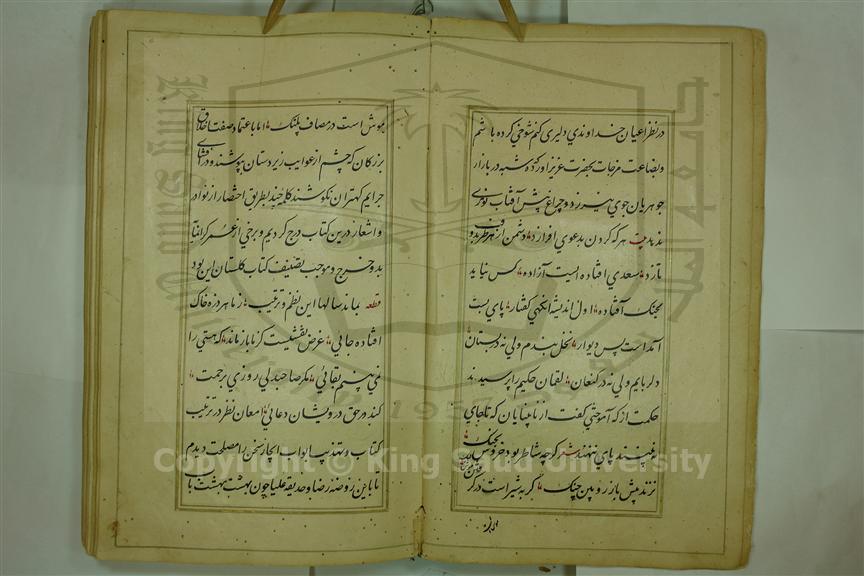 در نظر اعیان خداوندي دلیري کنم شوخي کرده باشم
وبضاعت مزجات بحضرت عزیز اورده وشبه در بازار
جوهریان جوي نیرزد و چراغ پیش آفتاب نوري
ندهد بیت هر که گردن بدعوي افرازد دشمن از هر طرف بدو
تازد سعدي افتاده ایست آزاده کس نیاید
بجنک افتاده اول اندیشه وانکهي کفتار پاي بست
آمداست پس دیوار نخل بندم ولي نه در بستان
دلربایم ولي نه در کنعان لقمان حکیم را پرسیدند
حکمت از که آموختي کفت از نابینایان که تا جاي
نه بینند پاي ننهند شعر کرچه شاطر بود خروس بجنک
چه زند پیش باز رویین چنک کربه شیر است در کر
موش است در مصاف پلنک اما باعتماد وصفت اخلاق
بزرکان که چشم از عوایب زیردستان بپوشند و در افشاي
جرایم کهتران نکوشند کلمه چند بطریق اختصار از نوادر
واشعار درین کتاب درج کردیم و برخي از عمر کرانمایه
بدو خرج وموجب تصنیف کتاب کلستان این بود
قطعه بماند سالها این نظم و ترتیب ز ما هر ذره خاک
افتاده جائي غرض نقشیست کز ما باز ماند که هستي را
نمي بینم بقائي مکر صاحبدلي روزي برحمت
کند در حق درویشان دعائي امعان نظر در ترتیب
کتاب وتهذیب ابواب ایجاز سخن را مصلحت دیدم
تا باین روضه رضا وحدیقه علیا چون بهشت بهشت باب
Copyright © King Saud University
1957